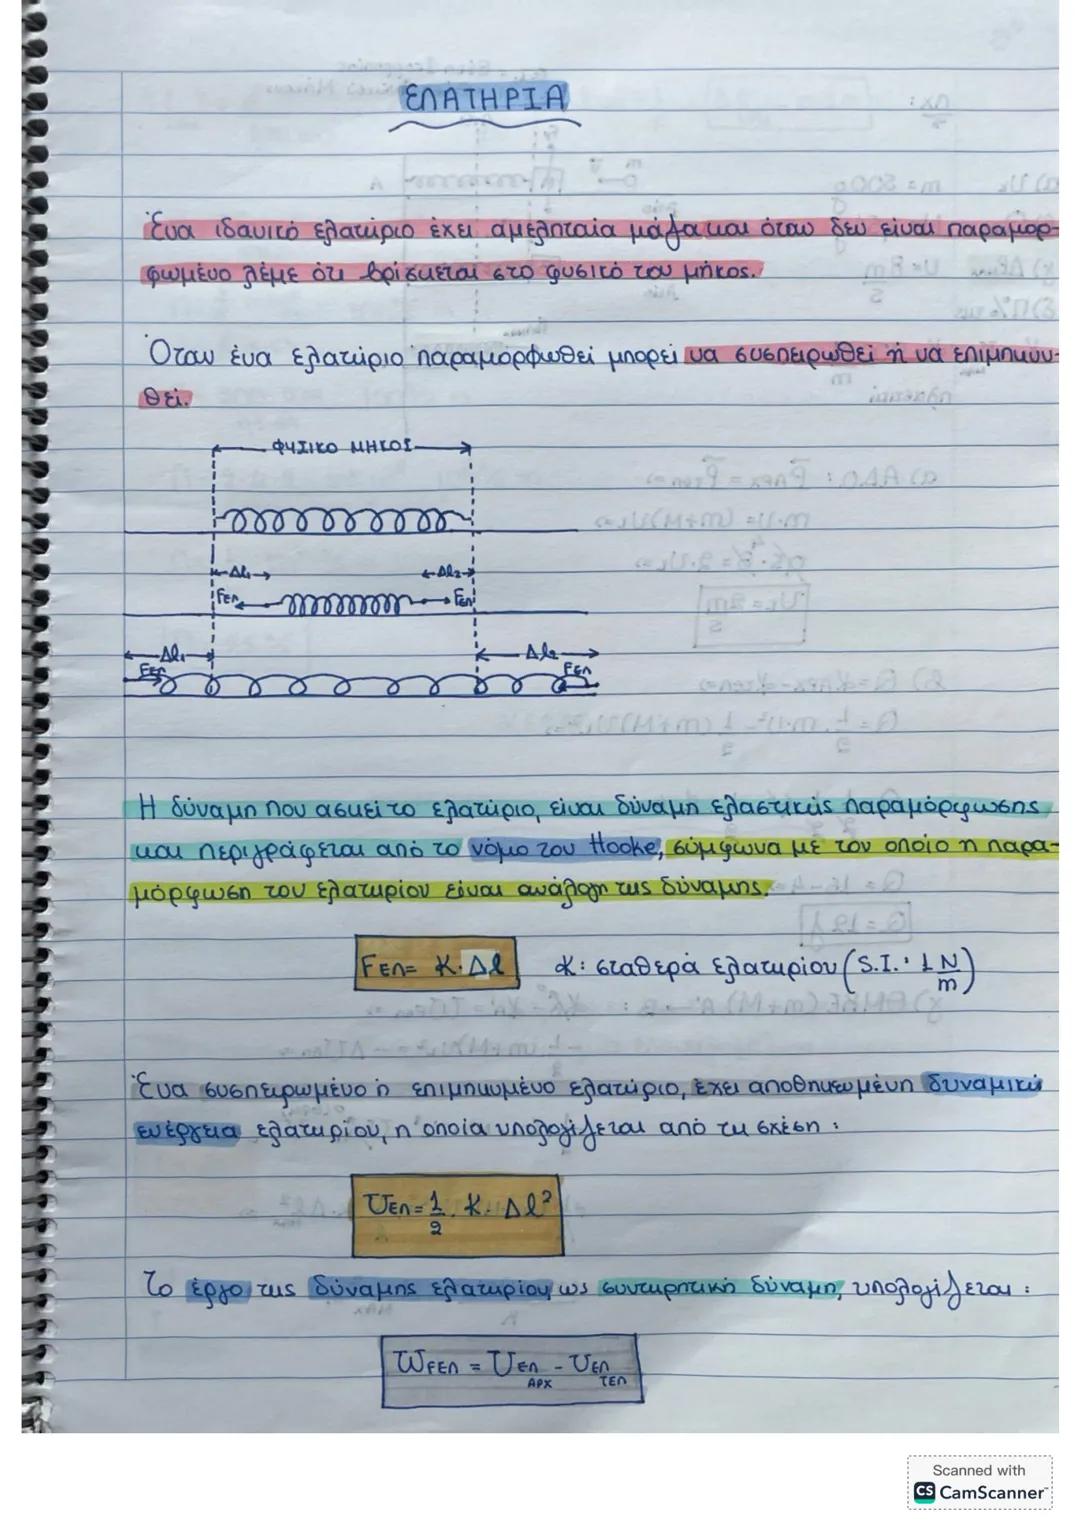 ΕΛΑΤΗΡΙΑ
Ένα ιδανικό ελατήριο έχει αμεληταία μάζα και όταν δεν είναι παραμορ-
φωμένο λέμε ότι βρίσκεται στο φυσικό του μήκος.
Όταν ένα ελατήριο παραμορφωθεί μπορεί να συσπειρωθεί ή να επιμηκυν-
θεί.
ΦΥΣΙΚΟ ΜΗΚΟΣ
Δl₁ Δl₂
Fελ Fελ
Δl₁ Δl₂
Fελ Fελ
Η δύναμη που ασκεί το ελατήριο, είναι δύναμη ελαστικής παραμόρφωσης
και περιγράφεται από το νόμο του Hooke, σύμφωνα με τον οποίο η παρα-
μόρφωση του ελατηρίου είναι ανάλογη της δύναμης.
Fελ = K·Δl K: σταθερά ελατηρίου (S.I.: 1 N/m)
Ένα συσπειρωμένο ή επιμηκυμένο ελατήριο, έχει αποθηκευμένη δυναμική
ενέργεια ελατηρίου, η οποία υπολογίζεται από τη σχέση :
Uελ = 1/2 · K · Δl²
Το έργο της δύναμης ελατηρίου, ως συντηρητική δύναμη, υπολογίζεται :
WFελ = Uελ ΑΡΧ - Uελ ΤΕΛ
Scanned with
CS CamScanner